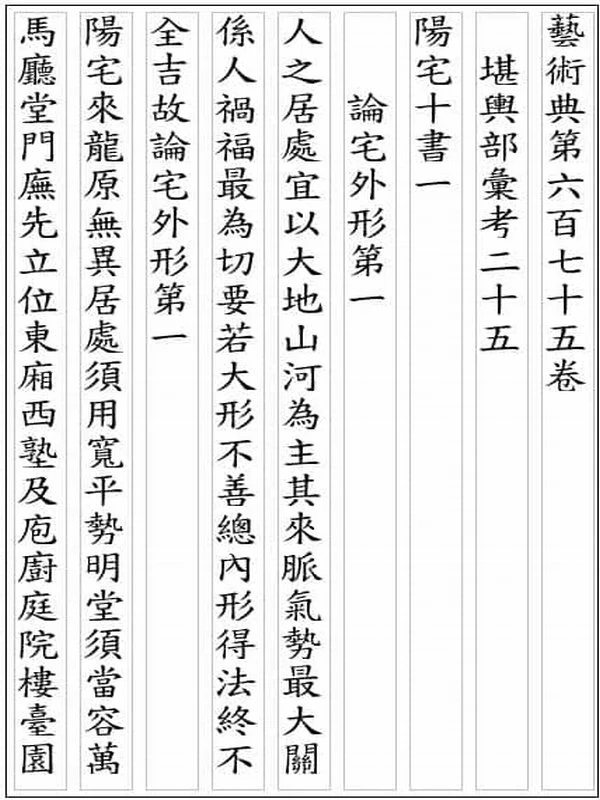 藝術典第六百七十五卷
堪輿部彙考二十五
陽宅十書一
論宅外形第一
人之居處宜以大地山河為主其來脈氣勢最大關
係人禍福最為切要若大形不善總內形得法終不
全吉故論宅外形第一
陽宅來龍原無異居處須用寬平勢明堂須當容萬
馬廳堂門廡先立位東廂西塾及庖廚庭院樓臺園